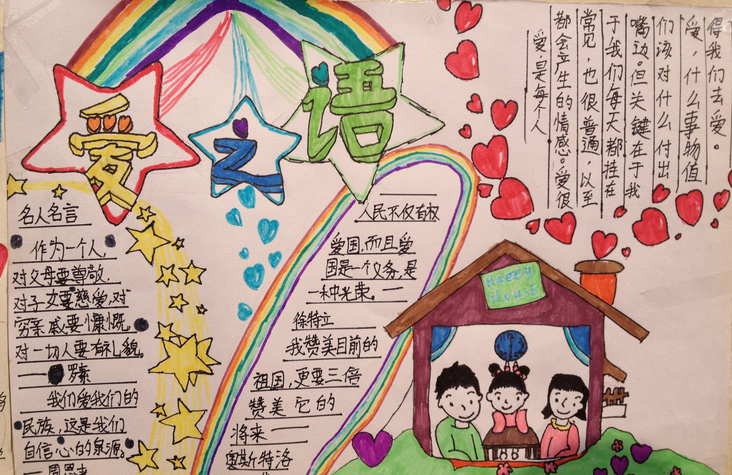 爱之语
名人名言
作为一个人,
对父母要尊敬,
对子女要慈爱,对
穷亲戚要慷慨,
对一切人要有礼貌。
——罗素
我们爱我们的
民族,这是我们
自信心的泉源。
——周恩来
人民不仅有权
爱国,而且爱
国是一个义务,是
一种光荣。——
徐特立
我赞美目前的
祖国,更要三倍
赞美它的
将来——
奥斯特洛
爱是每个人
都会产生的情感。爱很
常见,也很普遍,以至
于我们每天都挂在
嘴边。但关键在于我
们该对什么付出
爱,什么事物值
得我们去爱。
Happy
House